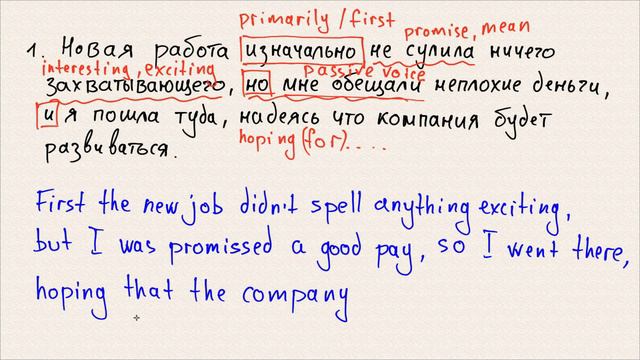 primarily / first
promise, mean
1. Новая работа изначально не сулила ничего
interesting, exciting
passive voice
захватывающего, но мне обещали неплохие деньги,
и я пошла туда, надеясь что компания будет
hoping (for)....
развиваться.
First the new job didn't spell anything exciting,
but I was promissed a good pay, so I went there,
hoping that the company